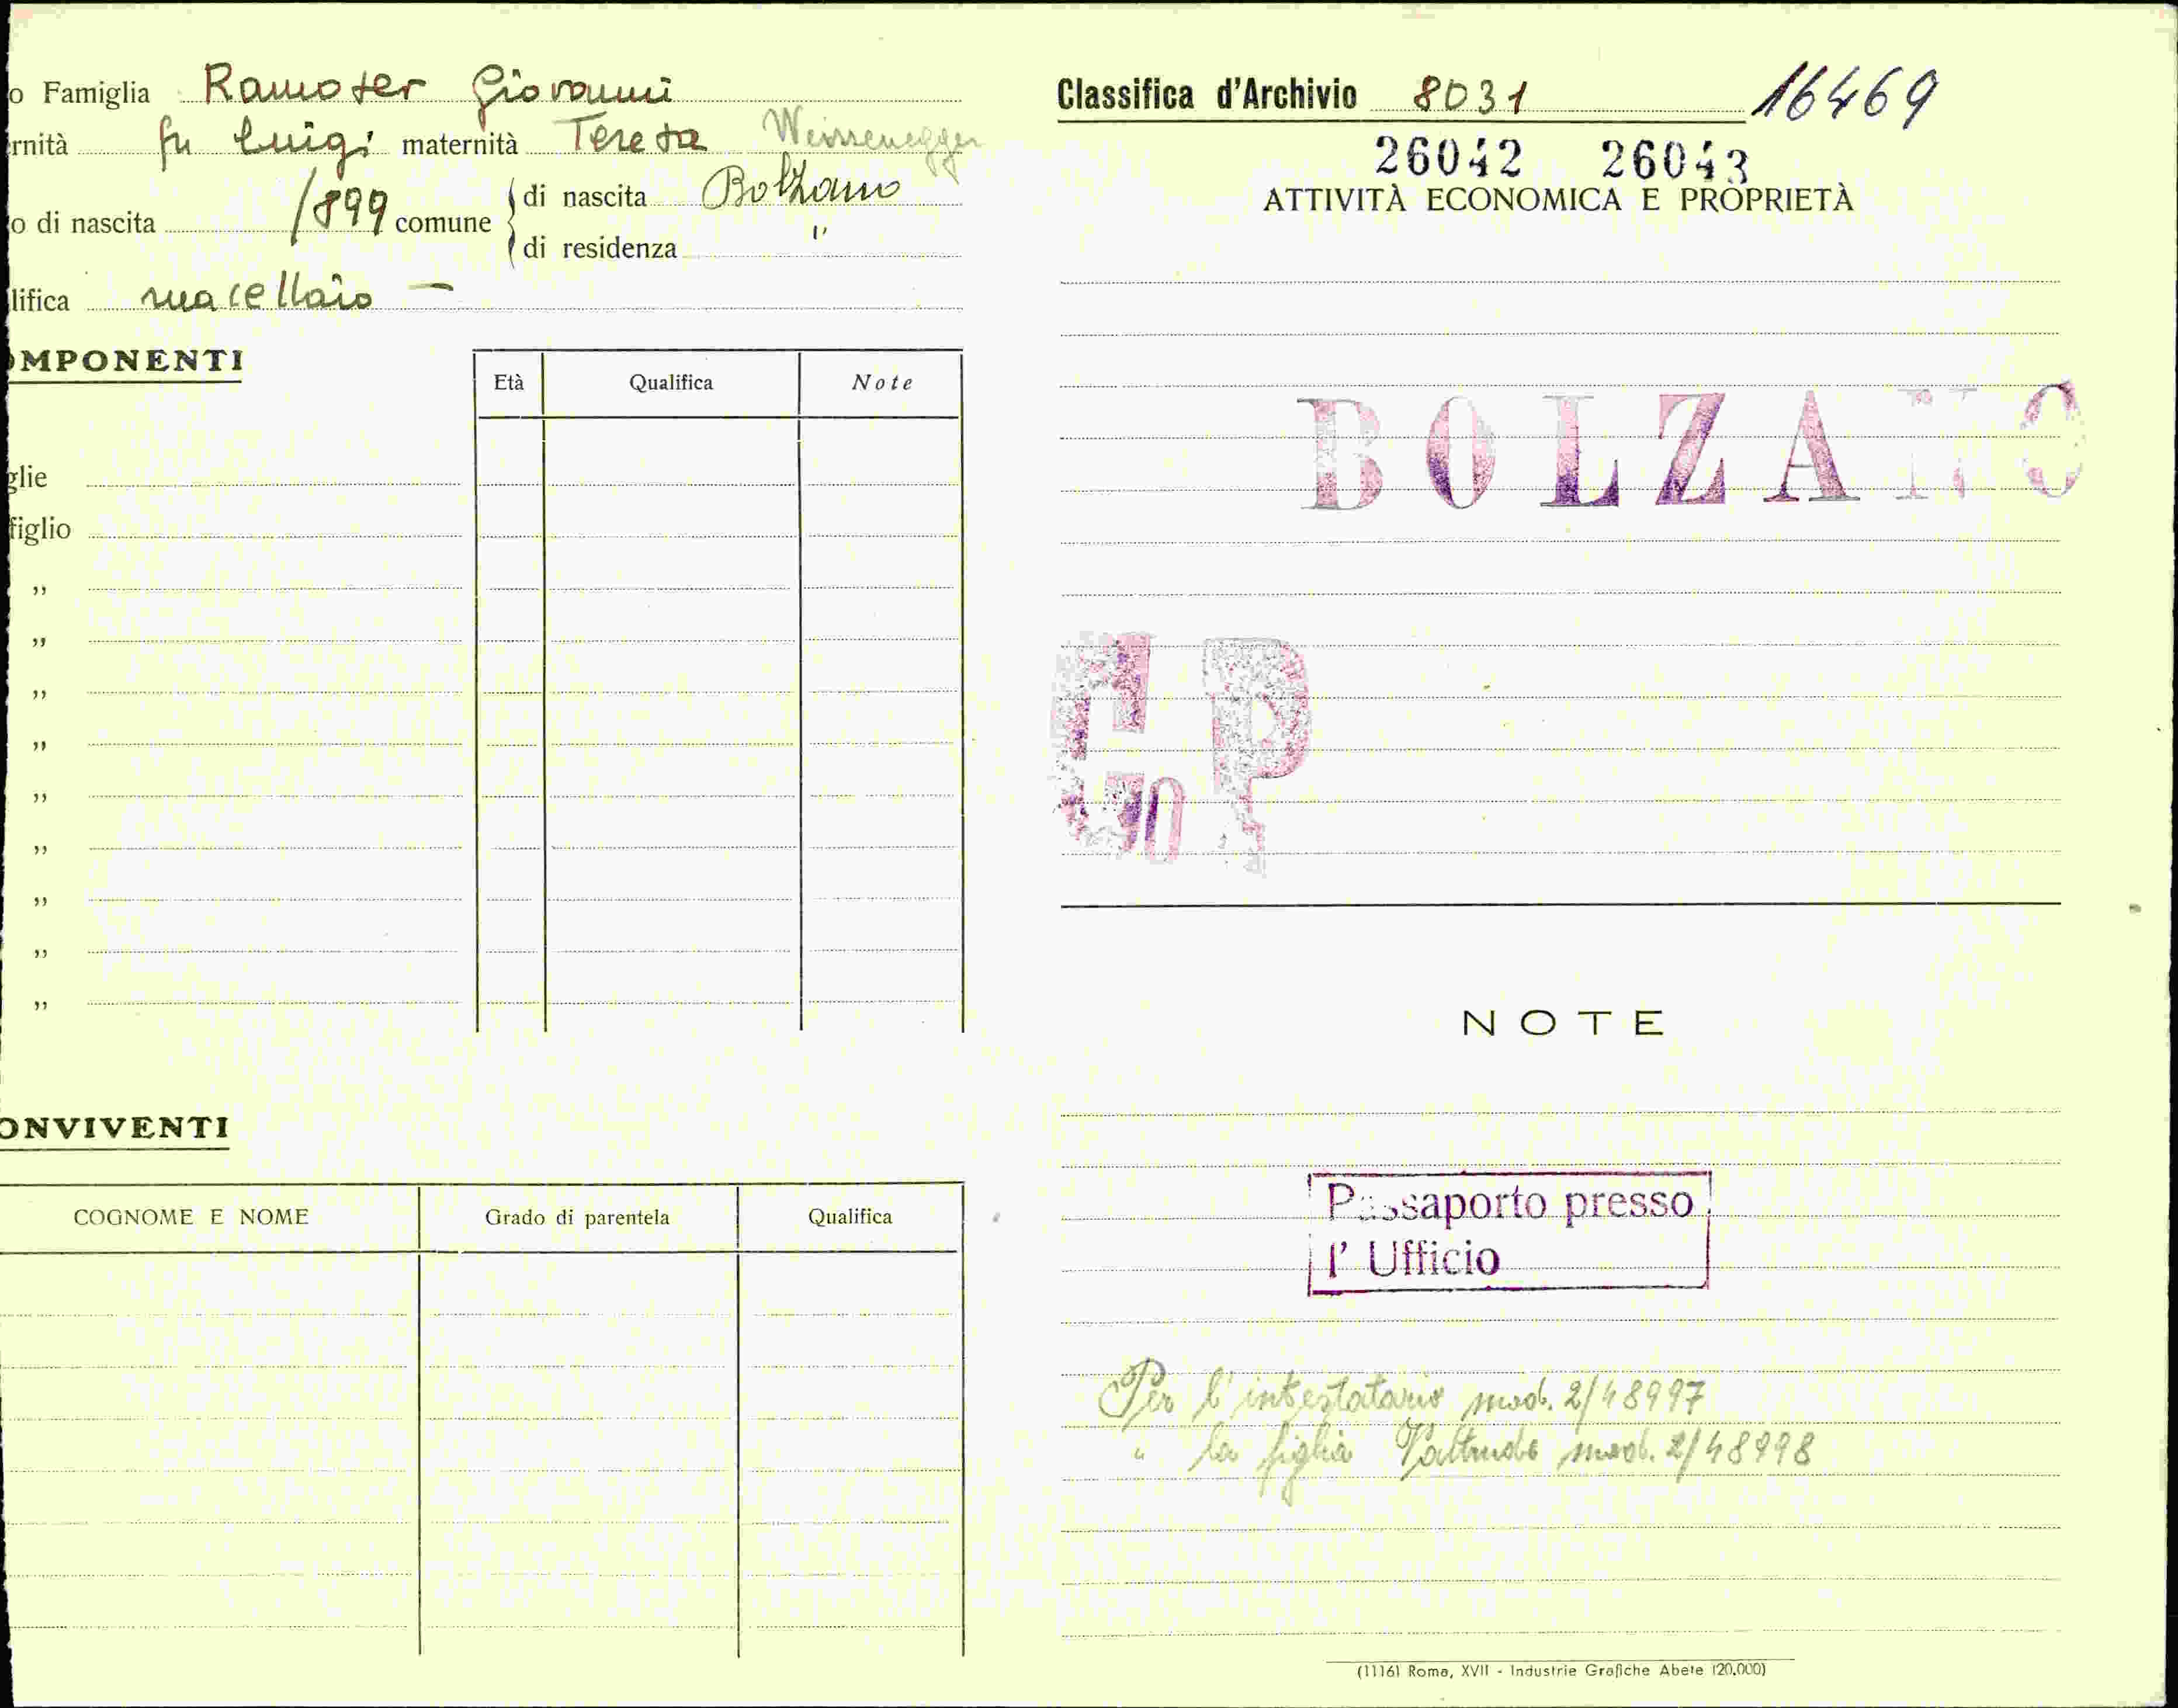 o Famiglia Ramoser Giovanni
rnità fu Luigi maternità Teresa Weissenegger
o di nascita 1899 comune di nascita Bolzano
di residenza "
lifica macellaio —
OMPONENTI
Età Qualifica Note
glie
figlio
"
"
"
"
"
"
"
"
"
ONVIVENTI
COGNOME E NOME Grado di parentela Qualifica
Classifica d'Archivio 8031 16469
26042 26043
ATTIVITÀ ECONOMICA E PROPRIETÀ
BOLZANO
P
NOTE
Passaporto presso
l' Ufficio
Per l'intestatario mod. 2/48997
" la figlia mod. 2/48998
(1116) Roma, XVII - Industrie Grafiche Abete (20.000)